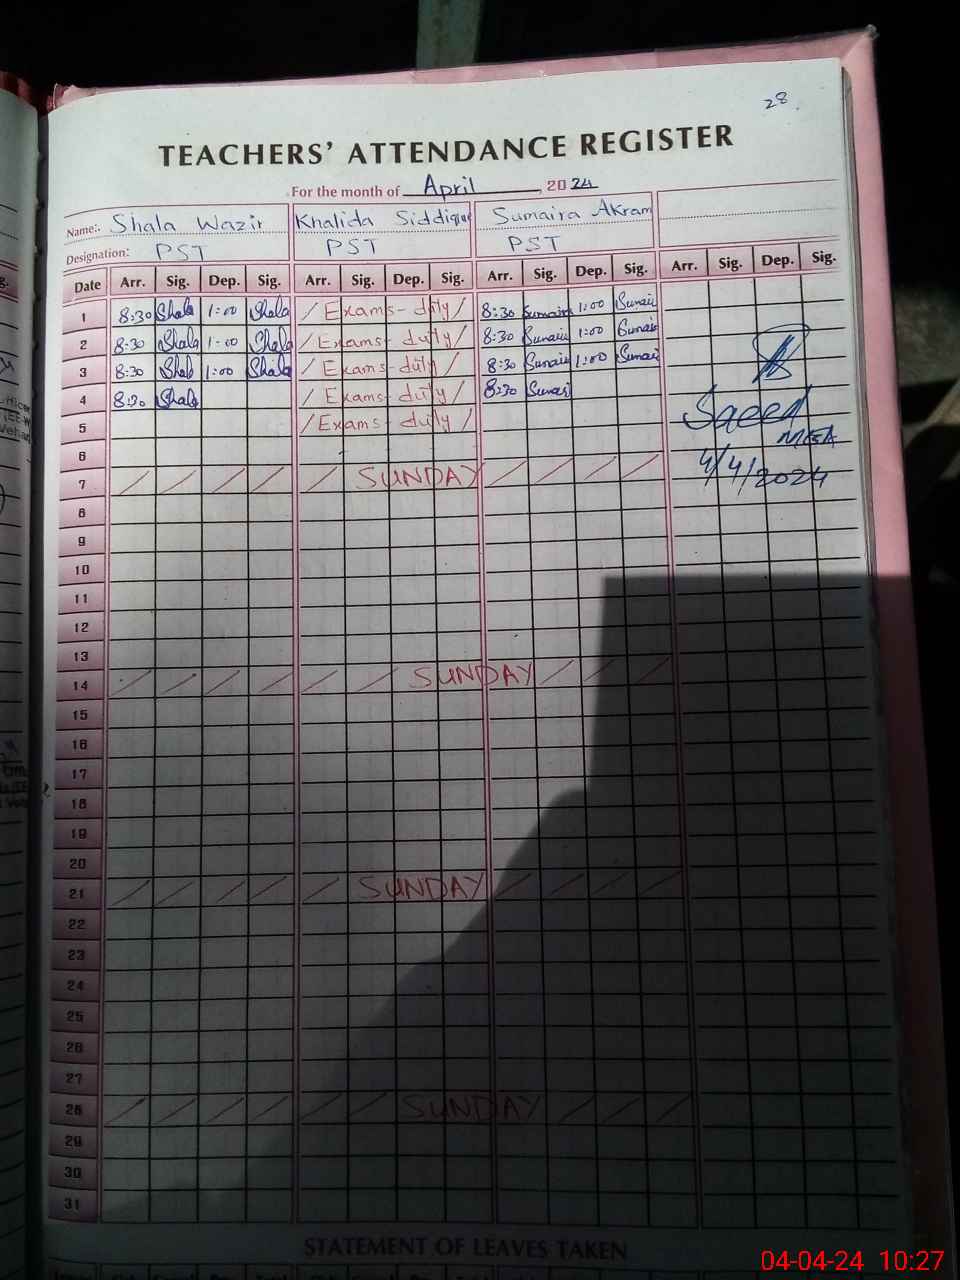 28
TEACHERS' ATTENDANCE REGISTER
For the month of April, 2024
Name:. Shala Wazir Khalida Siddique Sumaira Akram
Designation: PST PST PST
Date Arr. Sig. Dep. Sig. Arr. Sig. Dep. Sig. Arr. Sig. Dep. Sig. Arr. Sig. Dep. Sig.
1 8:30 Shala 1:00 Shala / Exams- duty / 8:30 Sumaira 1:00 Sumai
2 8:30 Shala 1:00 Shala / Exams- duty / 8:30 Sumai 1:00 Sumai
3 8:30 Shala 1:00 Shala / Exams- duty / 8:30 Sumai 1:00 Sumai
4 8:30 Shala / Exams- duty / 8:30 Sumai
Saeed
5 / Exams- duty /
MEA
6
7 SUNDAY
4/4/2024
8
9
10
11
12
13
14 SUNDAY
15
16
17
18
19
20
21 SUNDAY
22
23
24
25
26
27
28 SUNDAY
29
30
31
STATEMENT OF LEAVES TAKEN
04-04-24 10:27